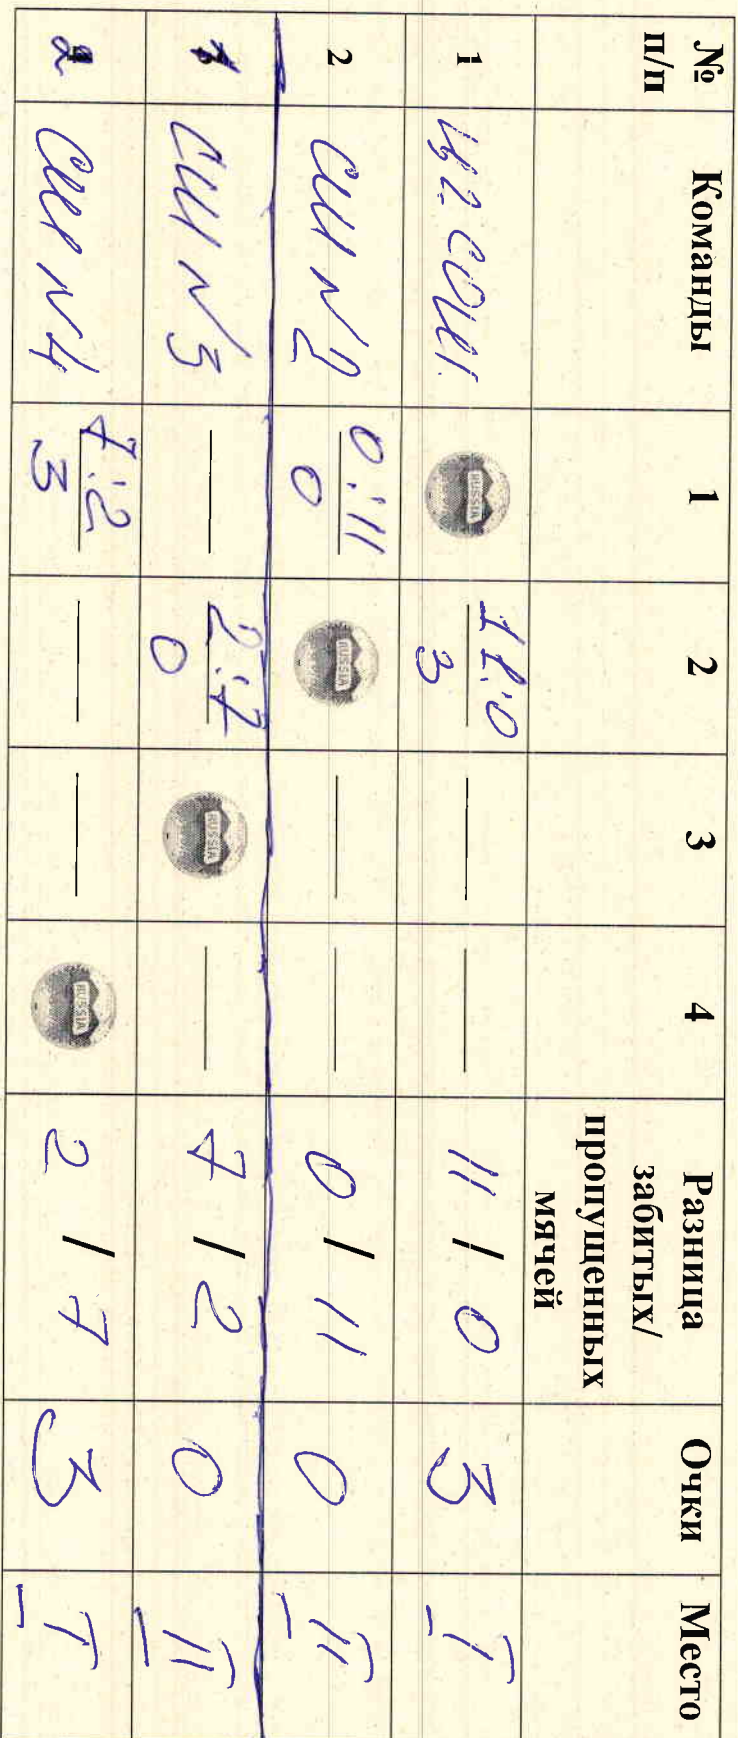 № п/п Команды 1 2 3 4 Разница забитых/ пропущенных мячей Очки Место
1 RUSSIA 11:0 3 — — 11 / 0 3 I
2 СШ №2 0:11 0 RUSSIA — — 0 / 11 0 II
1 СШ №3 — 2:7 0 RUSSIA — 7 / 2 0 II
2 СШ №4 7:2 3 — — RUSSIA 2 / 7 3 I